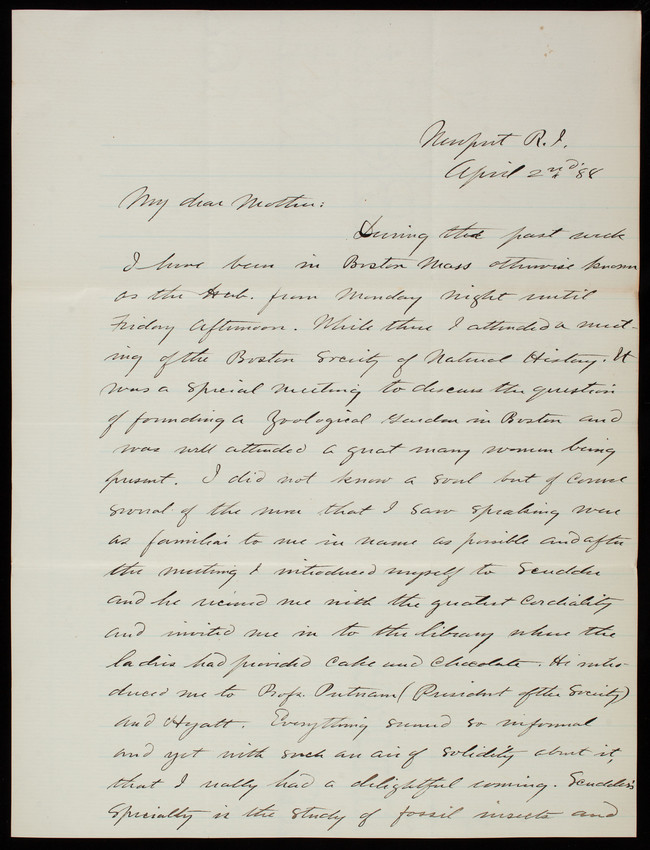 Newport R.I.
April 2nd. 88
My dear Mother:
During the past week
I have been in Boston Mass otherwise known
as the Hub. from Monday night until
Friday afternoon. While there I attended a meet-
ing of the Boston Society of Natural History. It
was a special meeting to discuss the question
of founding a Zoological Garden in Boston and
was well attended a great many women being
present. I did not know a soul but of course
several of the men that I saw speaking were
as familiar to me in name as possible and after
the meeting I introduced myself to Scudder
and he received me with the greatest cordiality
and invited me in to the library where the
ladies had provided cake and chocolate. He intro-
duced me to Profs. Putnam (President of the Society)
and Hyatt. Everything seemed so informal
and yet with such an air of solidity about it,
that I really had a delightful evening. Scudder's
specialty is the study of fossil insects and